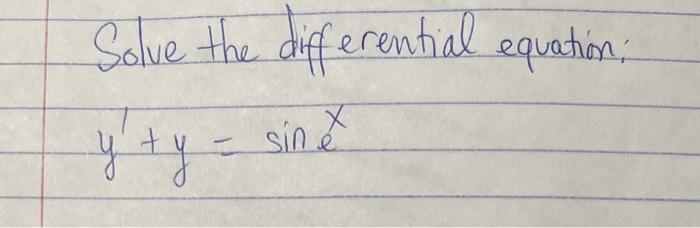 Solve the differential equation:
y' + y = sin e^x